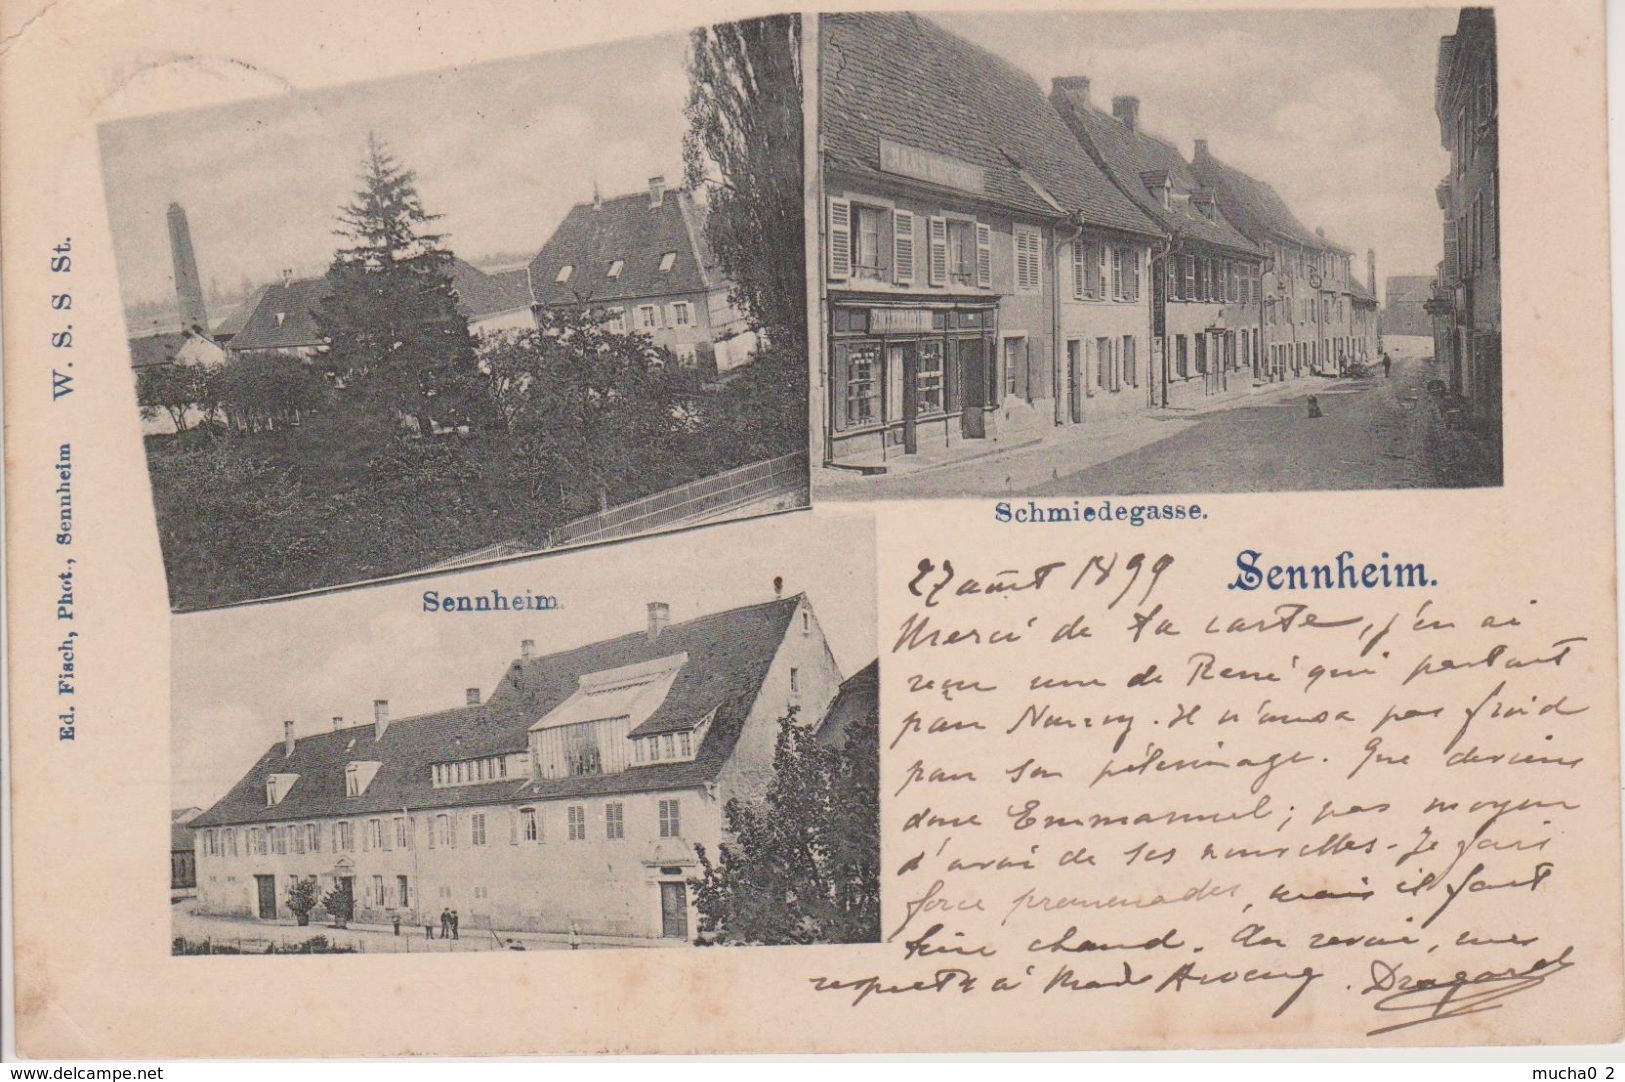 Ed. Fisch, Phot., Sennheim W. S. S St.
Sennheim.
Schmiedegasse.
Sennheim.
27 août 1899
Merci de ta carte, j'en ai
reçu une de René qui partait
pour Nancy. Il n'aura pas froid
pour son pélerinage. Que devient
donc Emmanuel; pas moyen
d'avoir de ses nouvelles - Je fais
force promenades, mais il fait
bien chaud. Au revoir, mes
respects à Mad.
www.delcampe.net
mucha0 2